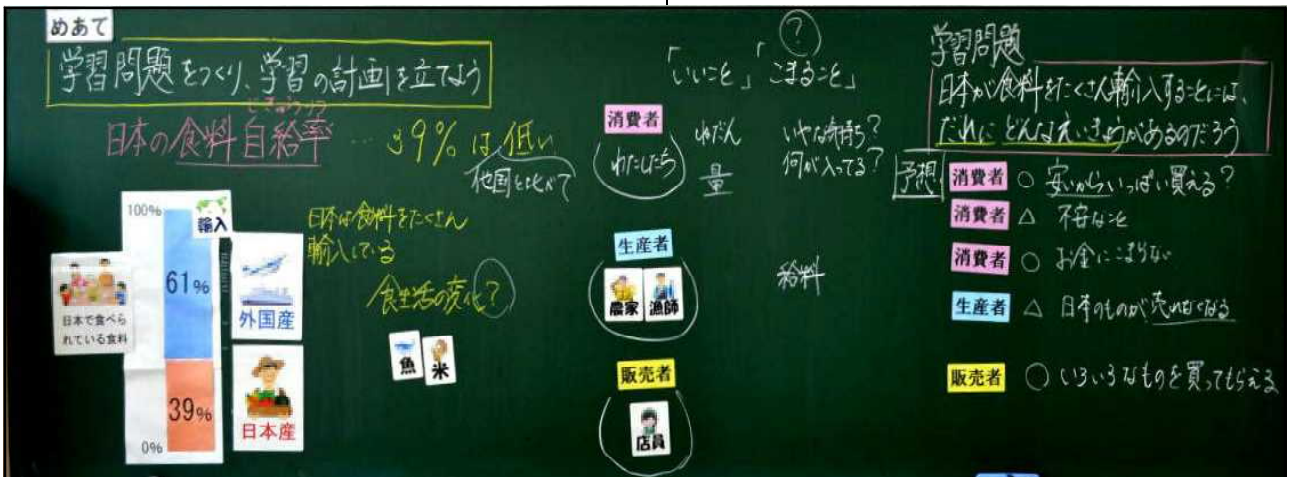 めあて
学習問題をつくり、学習の計画を立てよう
じきゅうりつ
日本の食料自給率…39%は低い
他国と比べて
100%
輸入
61%
39%
0%
日本で食べら
れている食料
外国産
日本産
日本は食料をたくさん
輸入している
食生活の変化?
魚
米
?
「いいこと」「こまること」
消費者
わたしたち
ねだん
量
いやな気持ち?
何が入ってる?
生産者
農家
漁師
給料
販売者
店員
学習問題
日本が食料をたくさん輸入することには、
だれにどんなえいきょうがあるのだろう
予想
消費者 ○ 安いからいっぱい買える?
消費者 △ 不安なこと
消費者 ○ お金にこまらない
生産者 △ 日本のものが売れなくなる
販売者 ○ いろいろなものを買ってもらえる